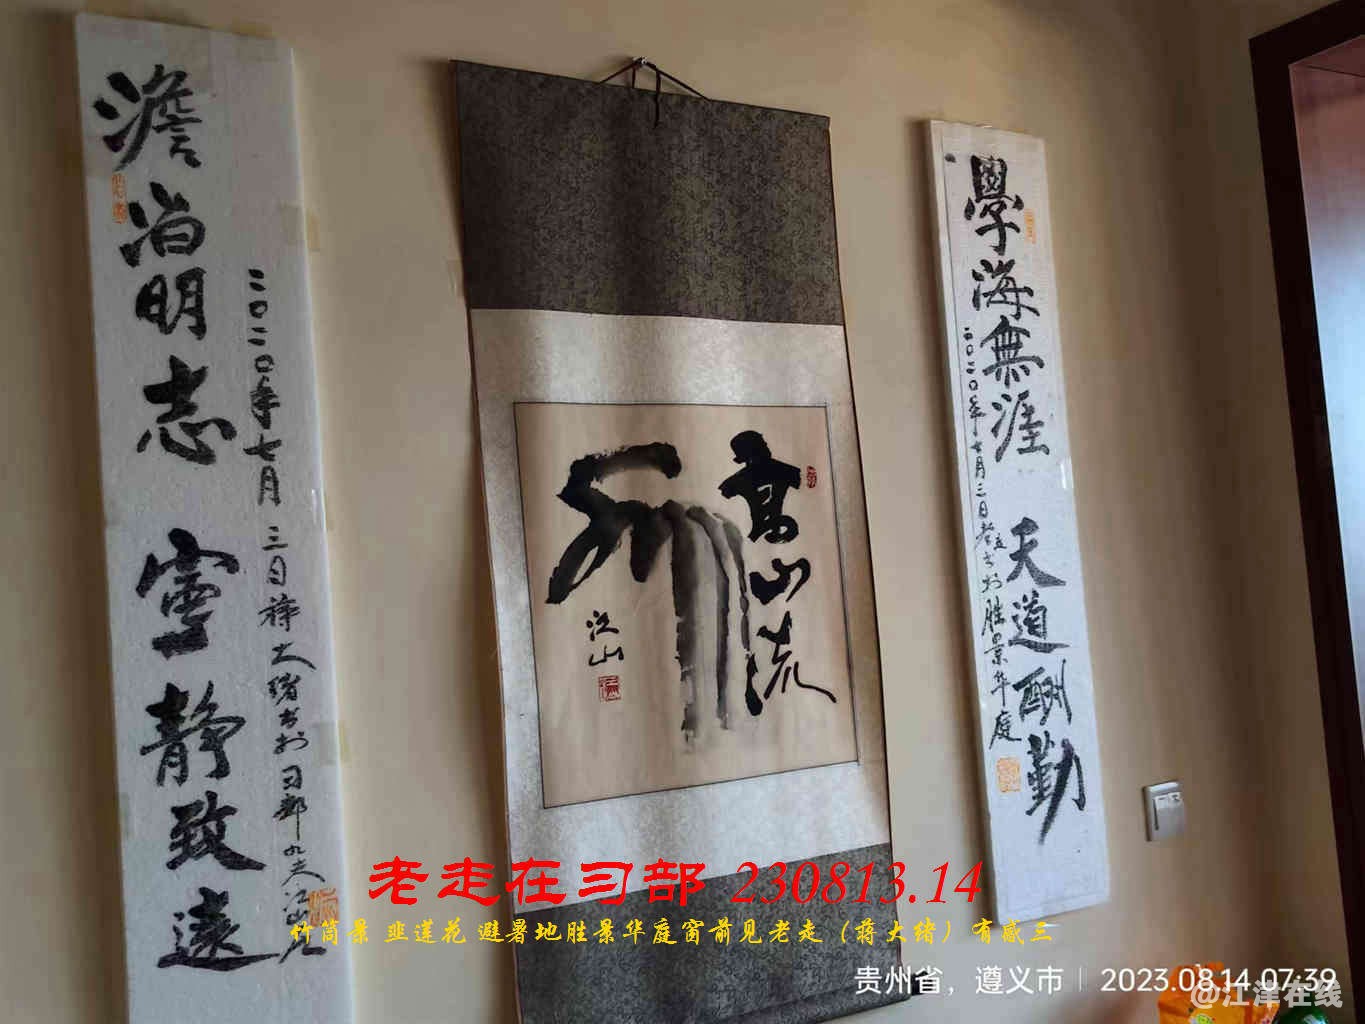 澹泊明志 寧靜致遠
二〇二〇年七月三日蒋大绪书于习部
高山流
江山
學海無涯 天道酬勤
二〇二〇年七月三日老走书于胜景华庭
老走在习部 230813.14
竹筒景 韭莲花 避暑地胜景华庭窗前见老走（蒋大绪）有感三
贵州省，遵义市 | 2023.08.14 07:39
@江洋在线